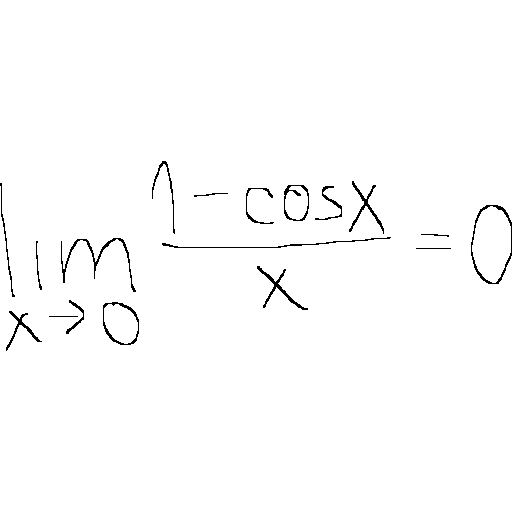 \lim_{x \to 0} \frac{1 - \cos x}{x} = 0